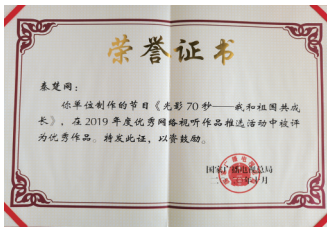 荣誉证书
秦楚网：
你单位制作的节目《光影70秒——我和祖国共成
长》，在2019年度优秀网络视听作品推选活动中被评
为优秀作品。特发此证，以资鼓励。
国家广播电视总局